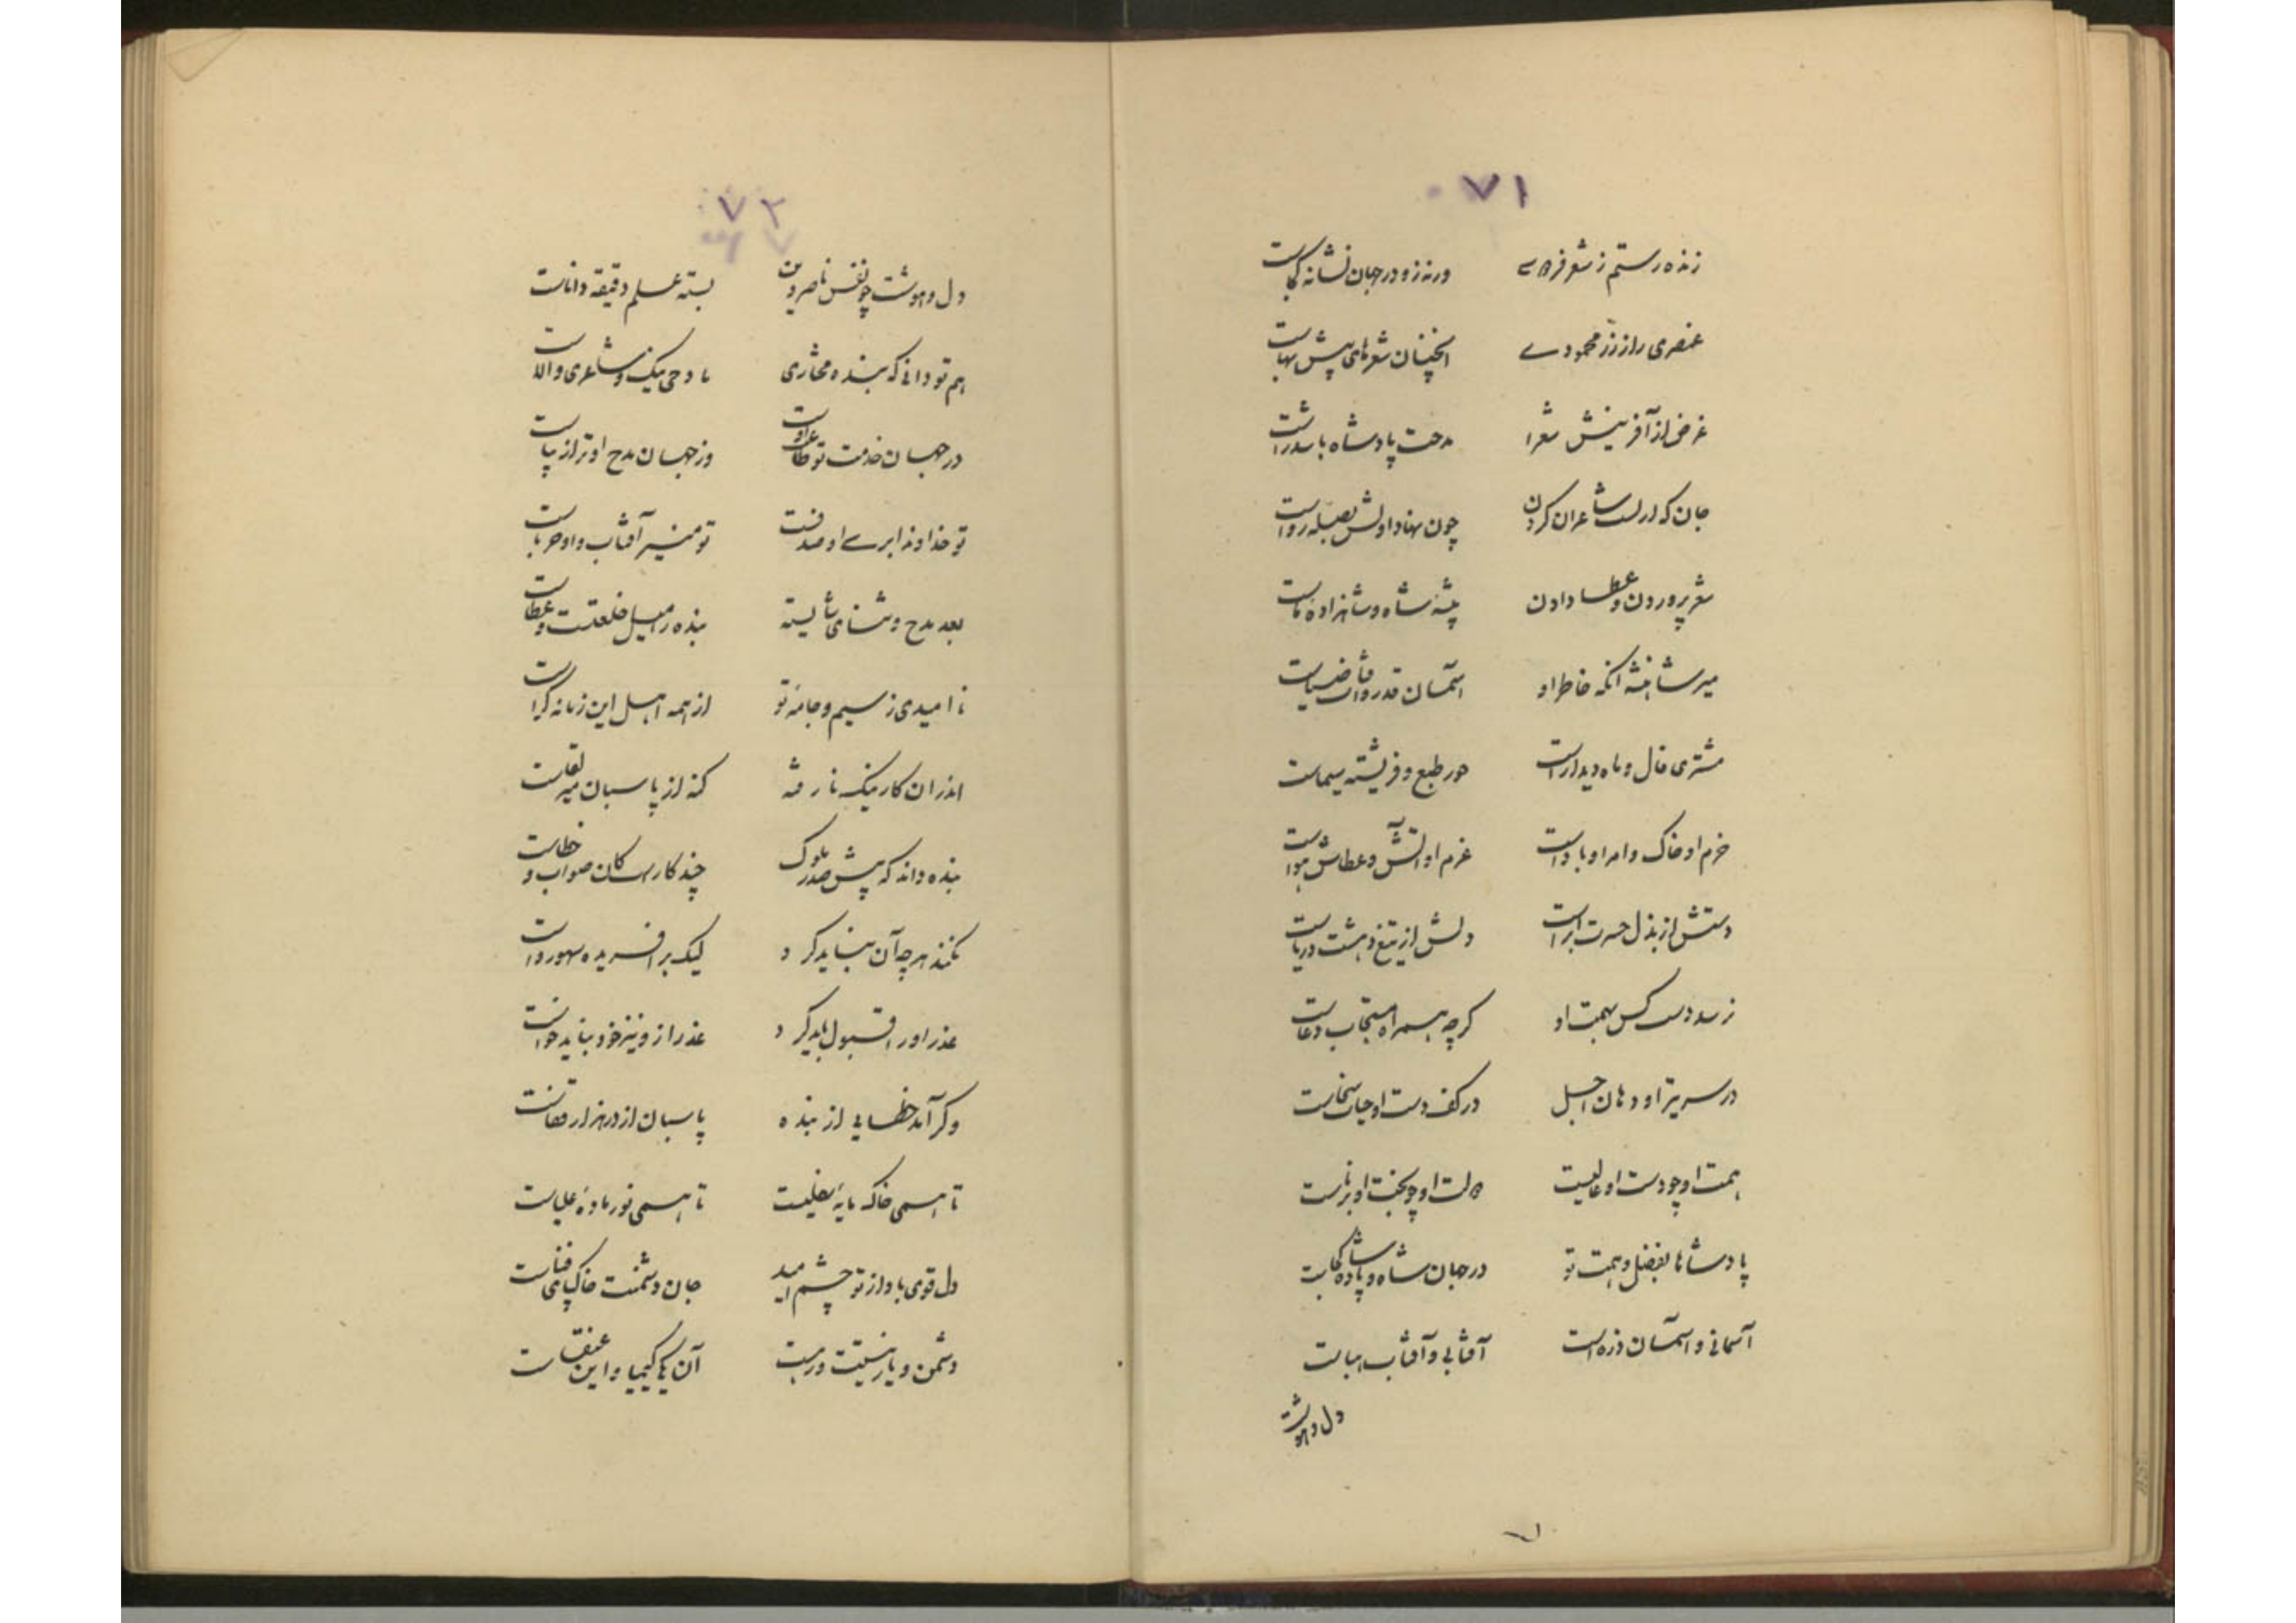 ۷۱
زنده رستم ز شعر فردوسی ورنه زو در جهان نشانه کجاست
عنصری را ز زر محمودی اینچنان شعرهای بیش بهاست
غرض از آفرینش شعرا مدحت پادشاه بار سداراست
جان که از لب شاعران کردن چون نهاد اولش بصله رواست
شعر پروردن و عطا دادن پیشه شاه و شاهزاده ماست
میر شاهنشه آنکه خاطر او آسمان قدر و آفتاب ضیاست
مشتری فال و ماه دیدار است حور طبع و فریشته سیماست
حزم او خاک و امر او باد است عزم او آتش و عطاش هواست
دستش از بذل حسرت ابر است دلش از تیغ دهشت دریاست
نرسد دست کس بهمت او گرچه همراه مستجاب دعاست
در سر تیر او دهان اجل در کف دست او جهان سخاست
همت او چو دست او عالیست دولت او چو بخت او برناست
پادشاها بفضل و همت تو در جهان شاه و پادشاه کجاست
آسمانی و آسمان ذره است آفتابی و آفتاب هباست
دل و هوشت
۷۲
دل و هوشت چو نفس ناصر دین بسته علم دقیقه داناست
هم تو دانی که بنده مختاری مادحی نیک و شاعری والاست
در جهان خدمت تو طاعت اوست وز جهان مدح او تر از پیاست
تو خداوند ابری او صدفست تو منیر آفتاب و او حرباست
بعد مدح و ثنای شایسته بنده را میل خلعت و عطاست
نا امیدی ز سیم و جامه تو از همه اهل این زمانه کراست
اندران کار نیک نارفته کنه از پاسبان میر لقاست
بنده داند که پیش صدر ملوک چند کارست کان صواب و خطاست
نکند هر چه آن نباید کرد لیک بر آفریده سهو رواست
عذر او را قبول باید کرد عذر از و نیز خود نباید خواست
وگر آمد خطایی از بنده پاسبان از در هزار قفاست
تا همی خاک مایه سفلیست تا همی نور ماده علیاست
دل قوی باد از تو چشم امید جان دشمنت خاک پای فناست
دشمن و یار نیستت و رهست آن یکی کیمیا و این عنقاست
۷۱